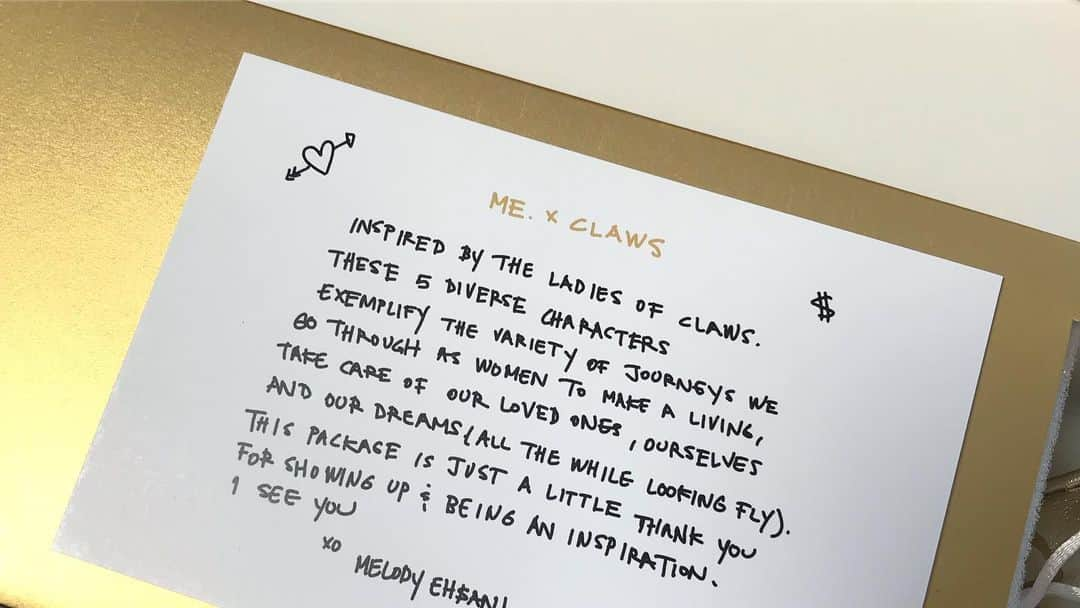 ME. x CLAWS
$
INSPIRED BY THE LADIES OF CLAWS.
THESE 5 DIVERSE CHARACTERS
EXEMPLIFY THE VARIETY OF JOURNEYS WE
GO THROUGH AS WOMEN TO MAKE A LIVING,
TAKE CARE OF OUR LOVED ONES, OURSELVES
AND OUR DREAMS (ALL THE WHILE LOOKING FLY).
THIS PACKAGE IS JUST A LITTLE THANK YOU
FOR SHOWING UP & BEING AN INSPIRATION.
I SEE YOU
XO
MELODY EH$ANI